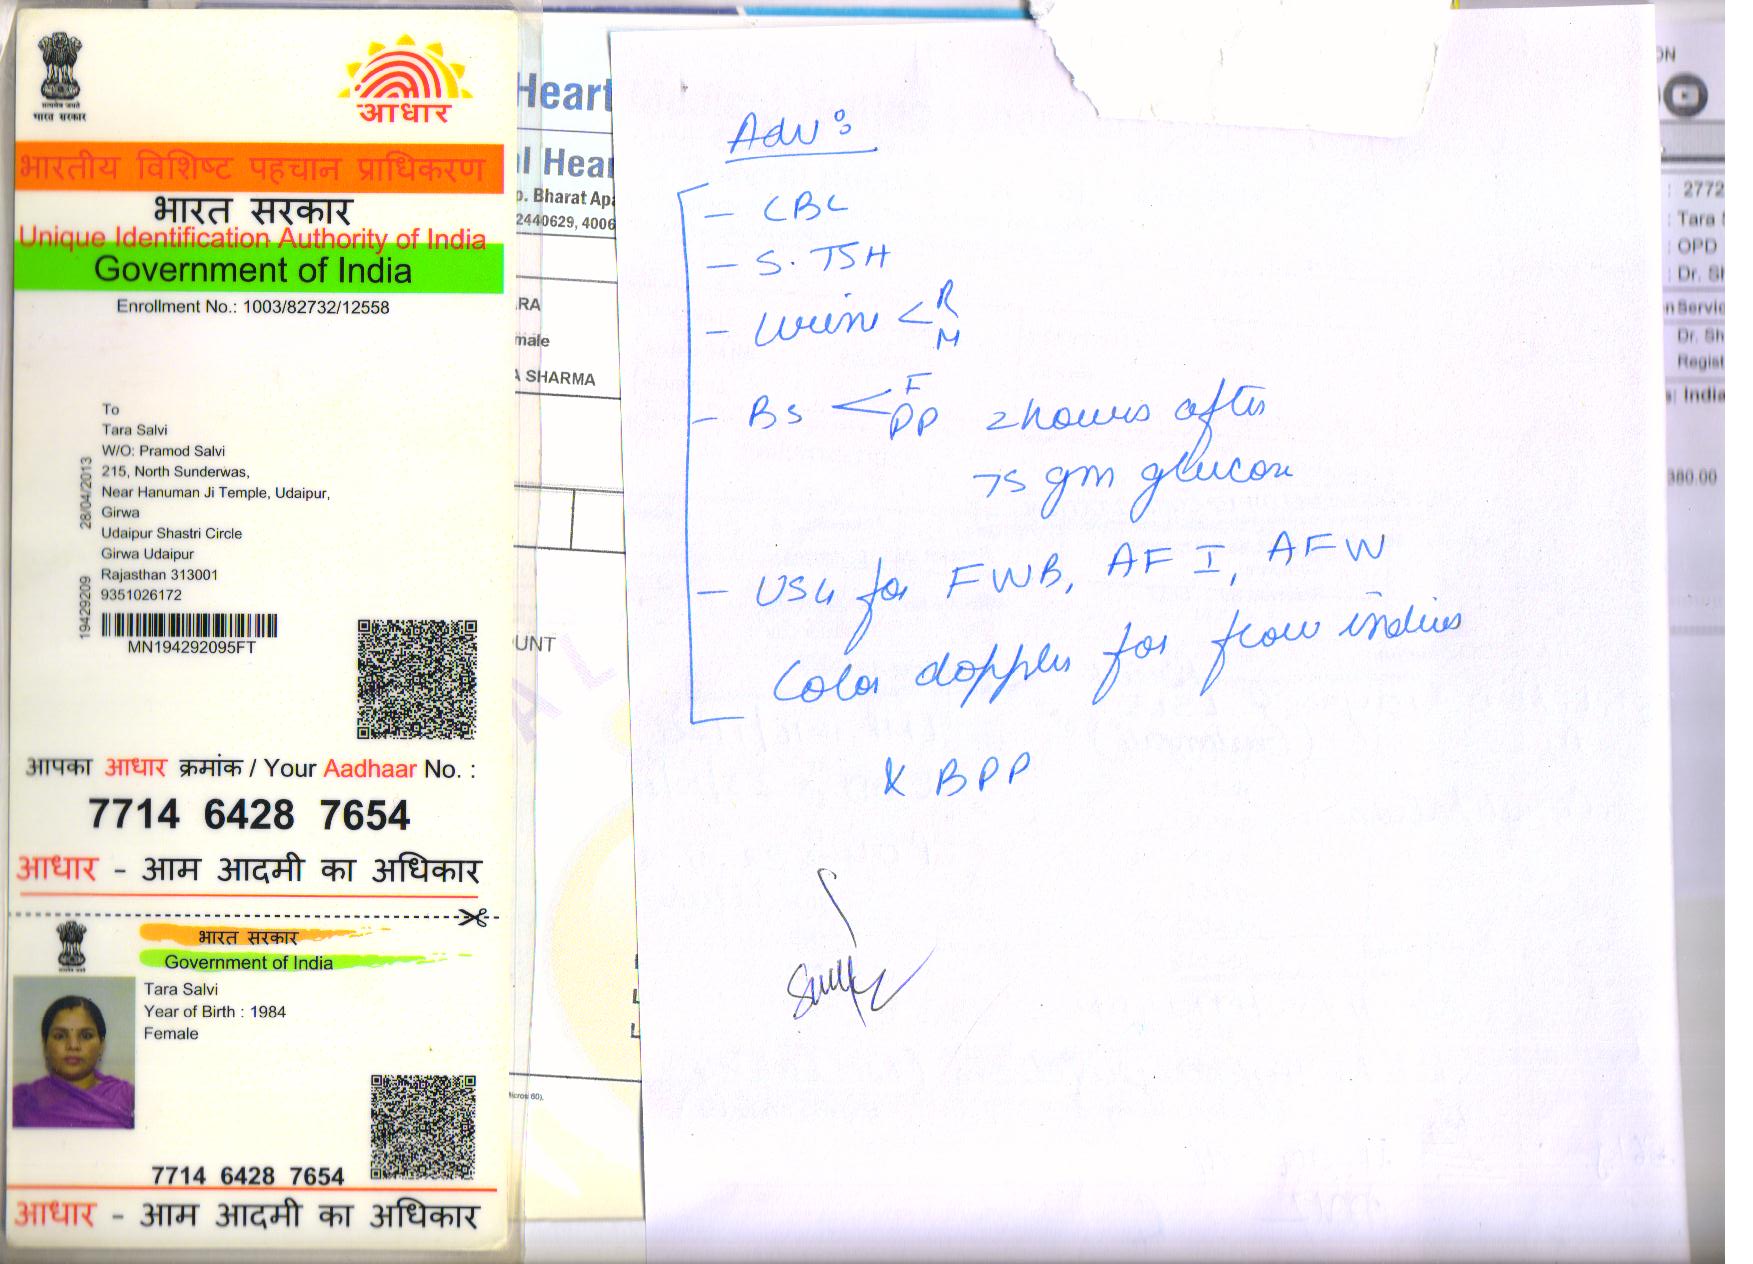 भारत सरकार
आधार
भारतीय विशिष्ट पहचान प्राधिकरण
भारत सरकार
Unique Identification Authority of India
Government of India
Enrollment No.: 1003/82732/12558
To
Tara Salvi
W/O: Pramod Salvi
215, North Sunderwas,
Near Hanuman Ji Temple, Udaipur,
Girwa
Udaipur Shastri Circle
Girwa Udaipur
Rajasthan 313001
9351026172
28/04/2013
19429209
MN194292095FT
आपका आधार क्रमांक / Your Aadhaar No. :
7714 6428 7654
आधार - आम आदमी का अधिकार
भारत सरकार
Government of India
Tara Salvi
Year of Birth : 1984
Female
7714 6428 7654
आधार - आम आदमी का अधिकार
Heart
l Hea
p. Bharat Ap
2440629, 4006
RA
male
A SHARMA
UNT
Adv:
- CBC
- S. TSH
- Urine < R
M
- BS < F
PP 2 hours after
75 gm glucose
- USG for FWB, AFI, AFW
Color doppler for flow indices
& BPP
ON
: 2772
: Tara
: OPD
: Dr. Sh
n Servic
Dr. Sh
Regist
: India
380.00